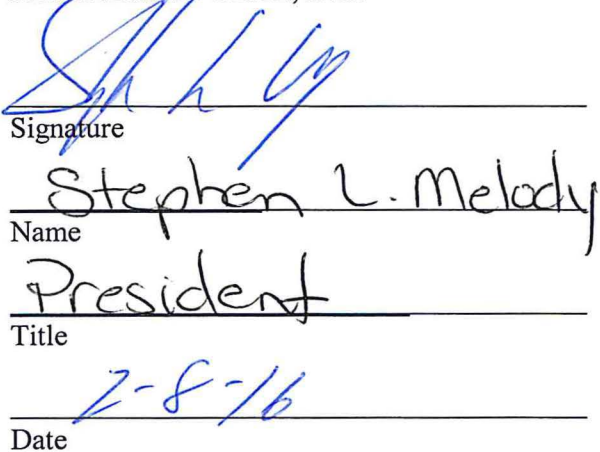 Signature
Stephen L. Melody
Name
President
Title
2-8-16
Date